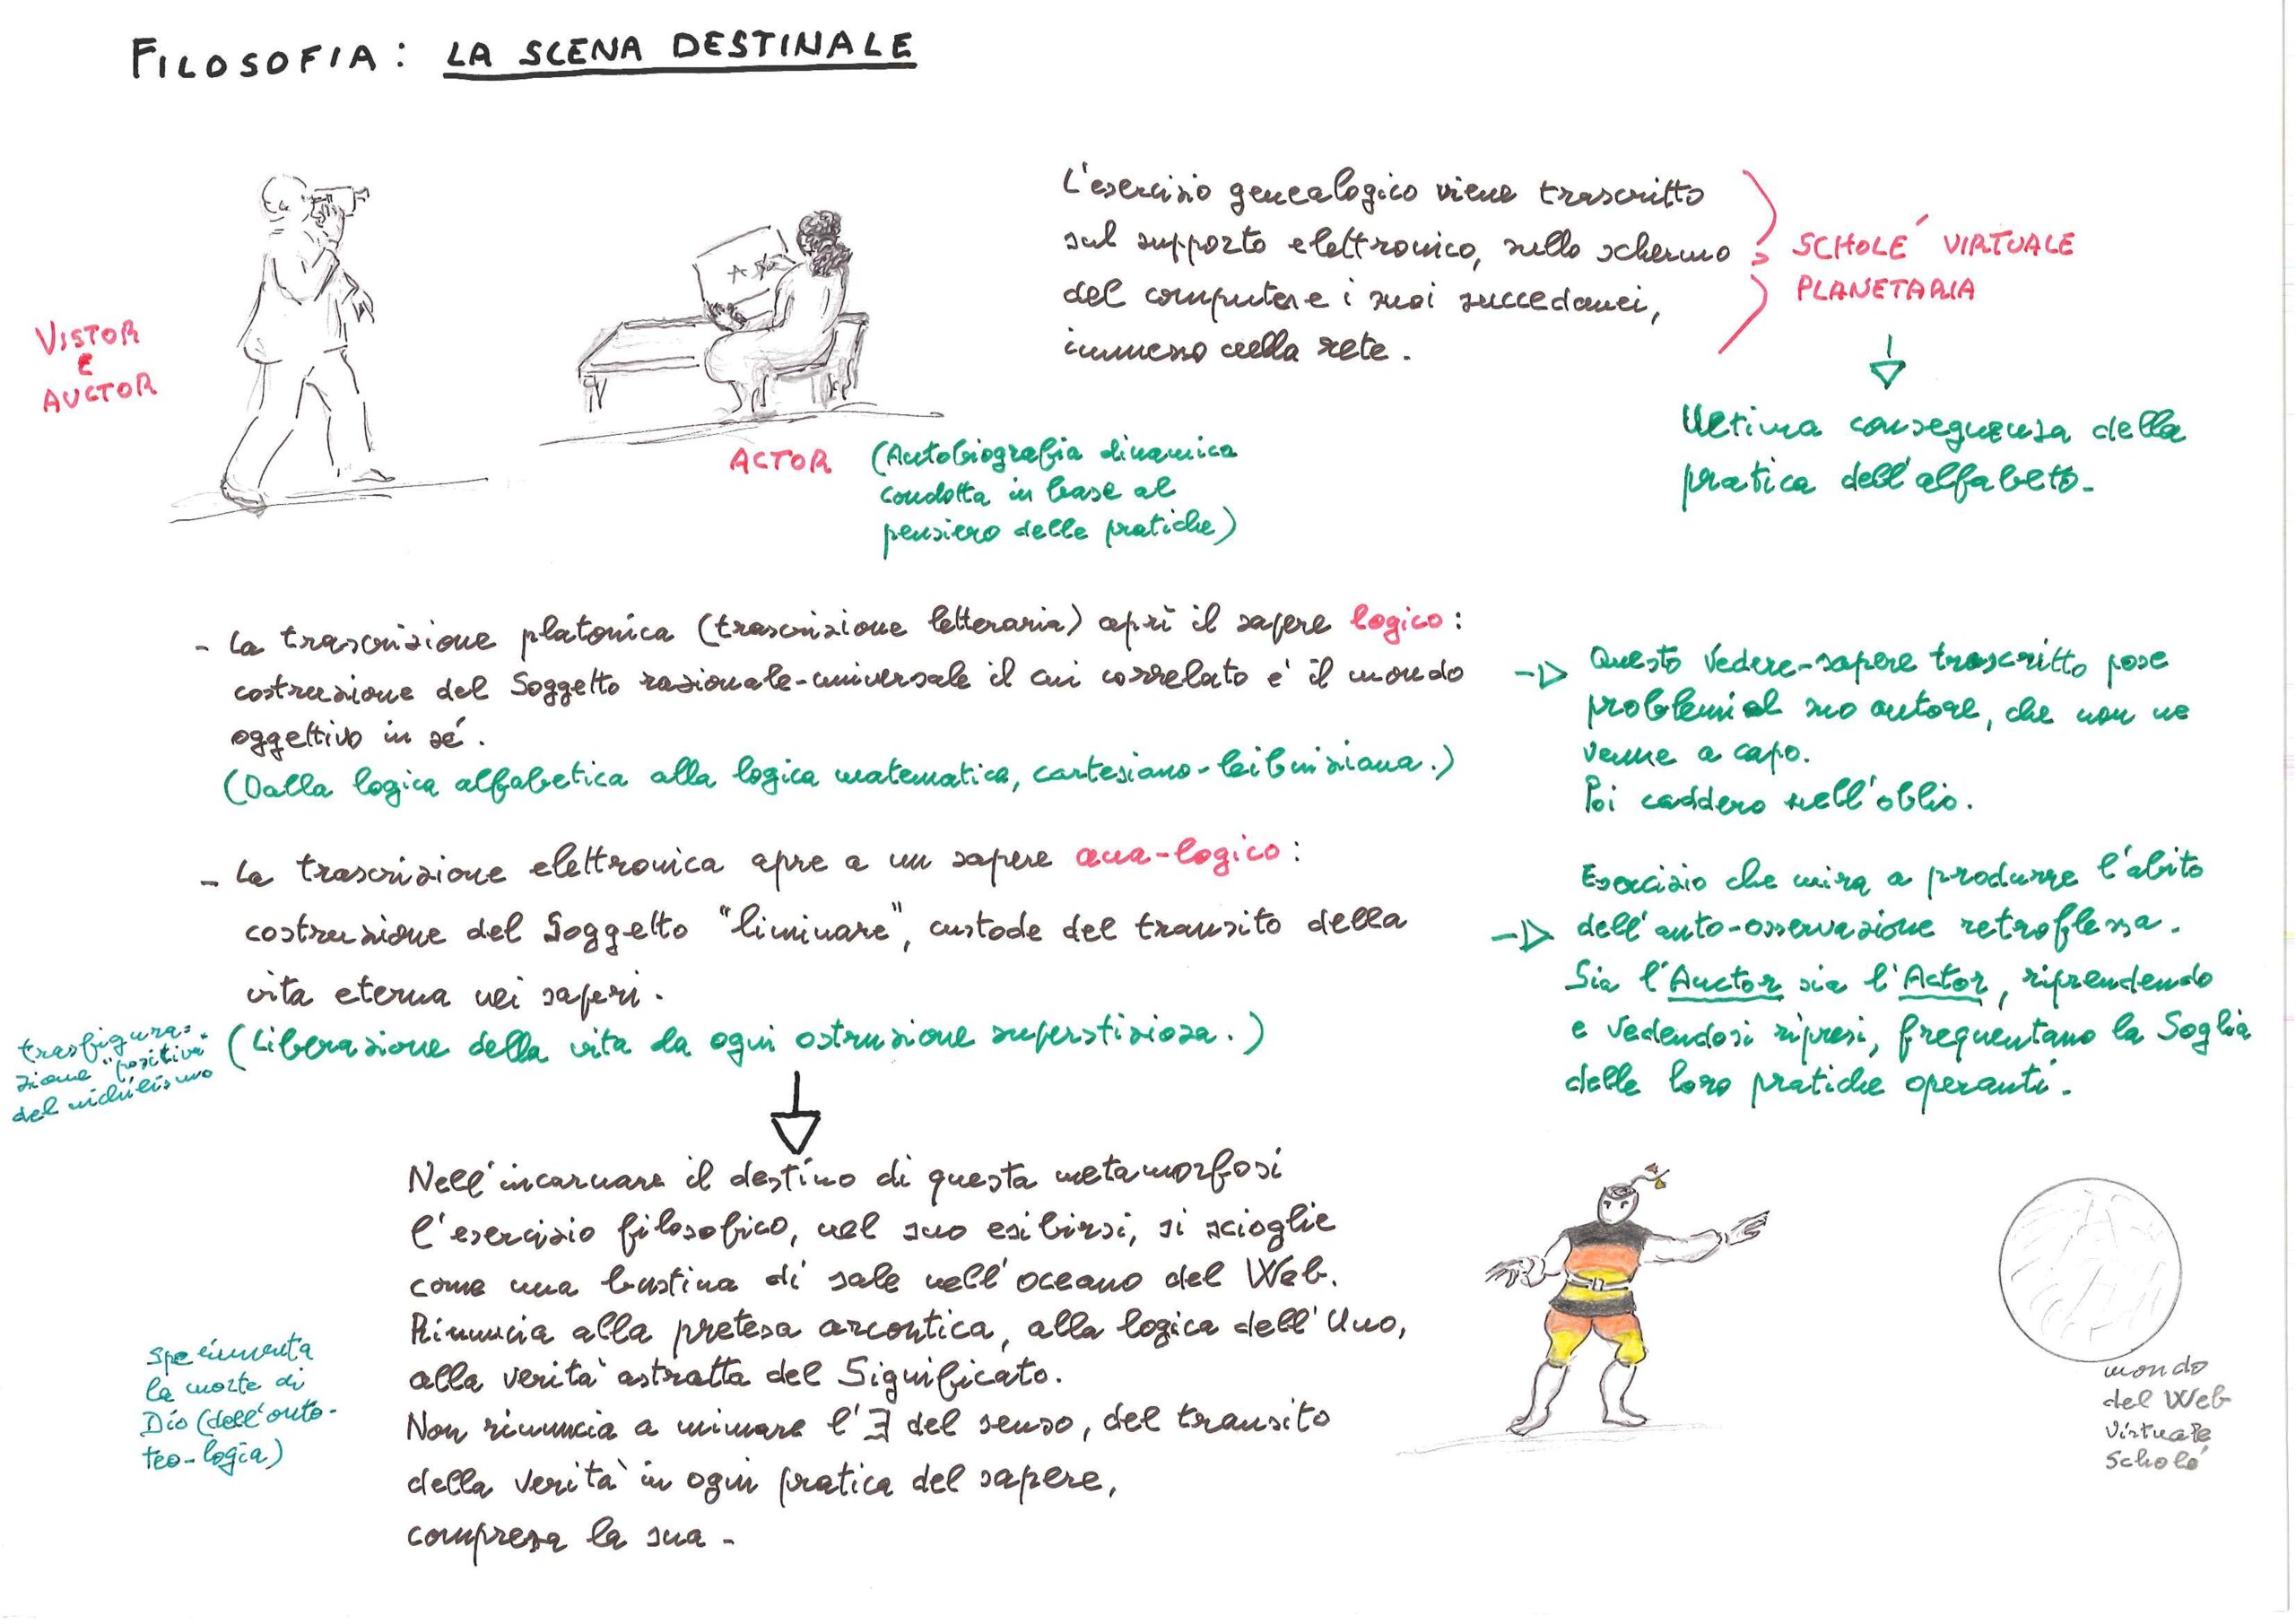 FILOSOFIA: LA SCENA DESTINALE
VISTOR
E
AUCTOR
ACTOR
(Autobiografia dinamica
condotta in base al
pensiero delle pratiche)
L'esercizio genealogico viene trascritto
sul supporto elettronico, nello schermo
del computer e i suoi succedanei,
immesso nella rete.
SCHOLÉ VIRTUALE
PLANETARIA
Ultima conseguenza della
pratica dell'alfabeto.
- La trascrizione platonica (trascrizione letteraria) aprì il sapere logico:
costruzione del Soggetto razionale-universale il cui correlato è il mondo
oggettivo in sé.
(Dalla logica alfabetica alla logica matematica, cartesiano-leibniziana.)
Questo vedere-sapere trascritto pose
problemi al suo autore, che non ne
venne a capo.
Poi caddero nell'oblio.
- La trascrizione elettronica apre a un sapere ana-logico:
costruzione del Soggetto "liminare", custode del transito della
vita eterna nei saperi.
(Liberazione della vita da ogni ostruzione superstiziosa.)
trasfigura=
zione "positiva"
del nichilismo
Esercizio che mira a produrre l'abito
dell'auto-osservazione retroflessa.
Sia l'Auctor sia l'Actor, riprendendo
e vedendosi ripresi, frequentano la Soglia
delle loro pratiche operanti.
Nell'incarnare il destino di questa metamorfosi
l'esercizio filosofico, nel suo esibirsi, si scioglie
come una bustina di sale nell'oceano del Web.
Rinuncia alla pretesa arcontica, alla logica dell'Uno,
alla verità astratta del Significato.
Non rinuncia a mimare l'∃ del senso, del transito
della verità in ogni pratica del sapere,
compresa la sua -
sperimenta
la morte di
Dio (dell'onto-
teo-logia)
mondo
del Web
virtuale
Scholé